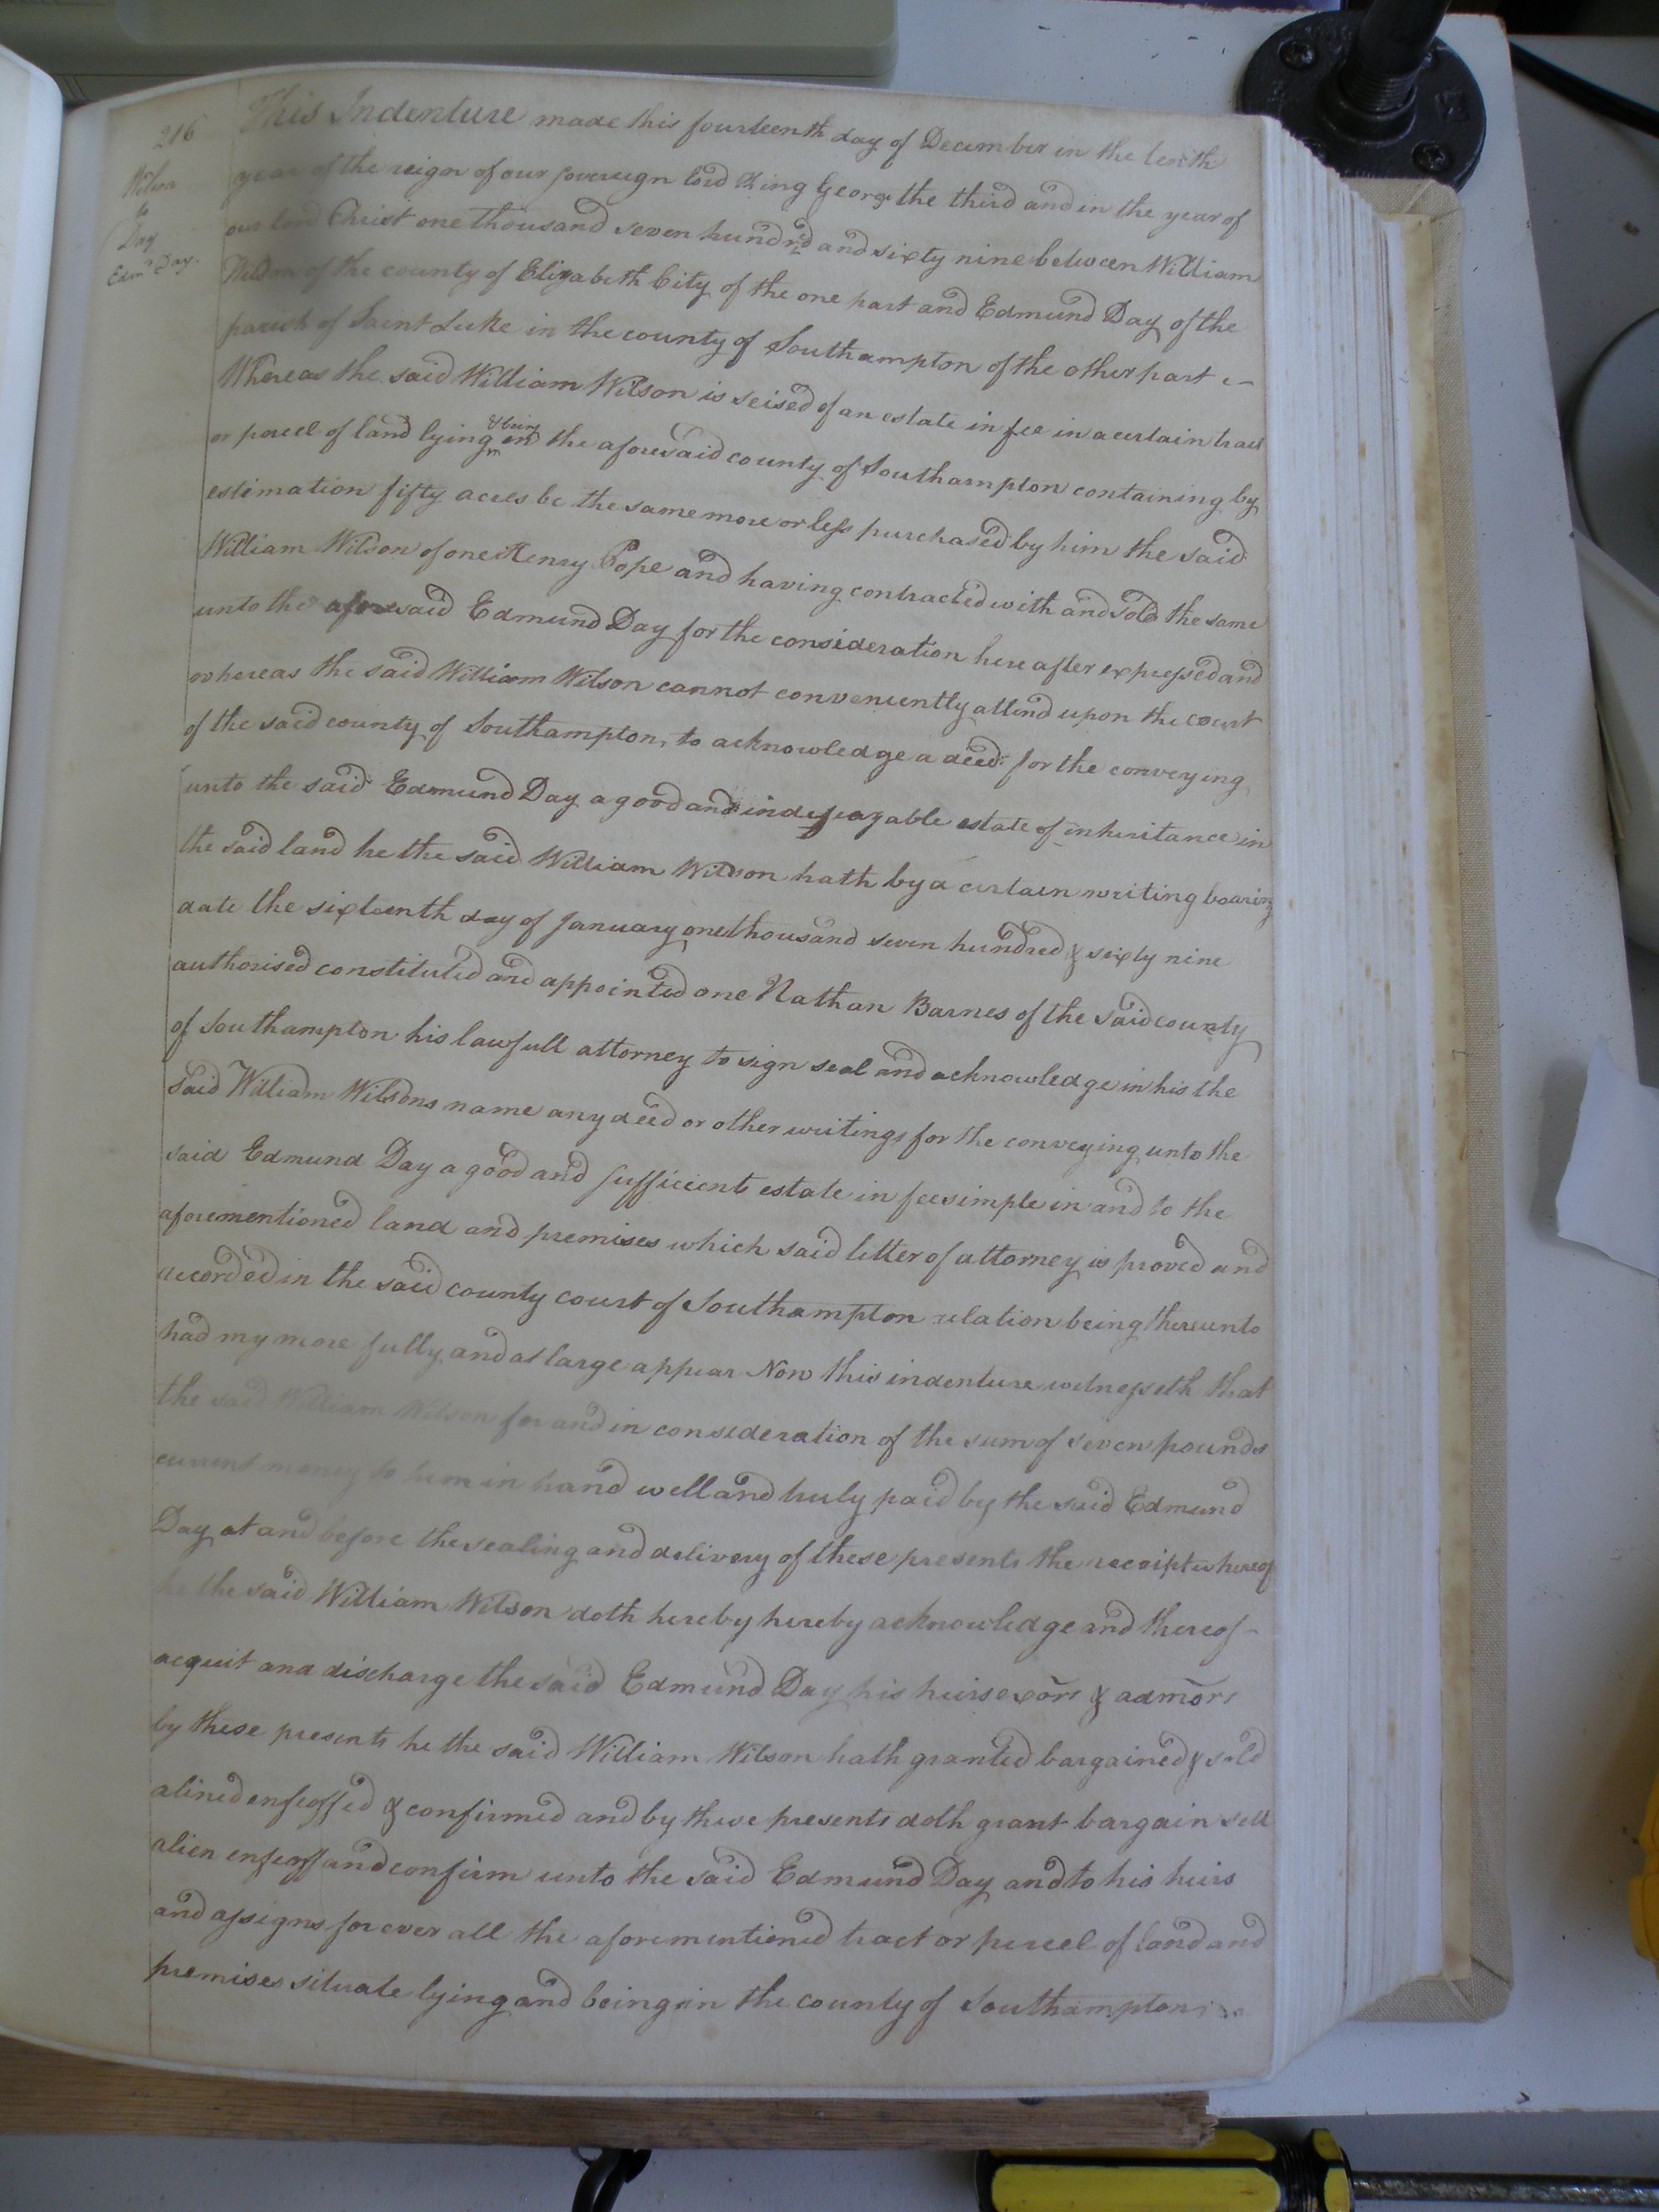 216
Wilson
to
Day
Edmd Day.
This Indenture made this fourteenth day of December in the tenth
year of the reign of our sovereign lord King George the third and in the year of
our lord Christ one thousand seven hundred and sixty nine between William
Wilson of the county of Elizabeth City of the one part and Edmund Day of the
parish of Saint Luke in the county of Southampton of the other part
Whereas the said William Wilson is seised of an estate in fee in a certain tract
or parcel of land lying & being in the aforesaid county of Southampton containing by
estimation fifty acres be the same more or less purchased by him the said
William Wilson of one Henry Pope and having contracted with and sold the same
unto the aforesaid Edmund Day for the consideration here after expressed and
whereas the said William Wilson cannot conveniently attend upon the court
of the said county of Southampton, to acknowledge a deed for the conveying
unto the said Edmund Day a good and indefeazable estate of inheritance in
the said land he the said William Wilson hath by a certain writing bearing
date the sixteenth day of January one thousand seven hundred & sixty nine
authorised constituted and appointed one Nathan Barnes of the said county
of Southampton his lawfull attorney to sign seal and acknowledge in his the
said William Wilsons name any deed or other writings for the conveying unto the
said Edmund Day a good and sufficient estate in fee simple in and to the
aforementioned land and premises which said letter of attorney is proved and
recorded in the said county court of Southampton relation being thereunto
had my more fully and at large appear Now this indenture witnesseth that
the said William Wilson for and in consideration of the sum of seven pounds
current money to him in hand well and truly paid by the said Edmund
Day at and before the sealing and delivery of these presents the receipt whereof
he the said William Wilson doth hereby hereby acknowledge and thereof
acquit and discharge the said Edmund Day his heirs exors & admors
by these presents he the said William Wilson hath granted bargained & sold
alined enfeoffed & confirmed and by these presents doth grant bargain sell
alien enfeoff and confirm unto the said Edmund Day and to his heirs
and assigns for ever all the aforementioned tract or parcel of land and
premises situate lying and being in the county of Southampton